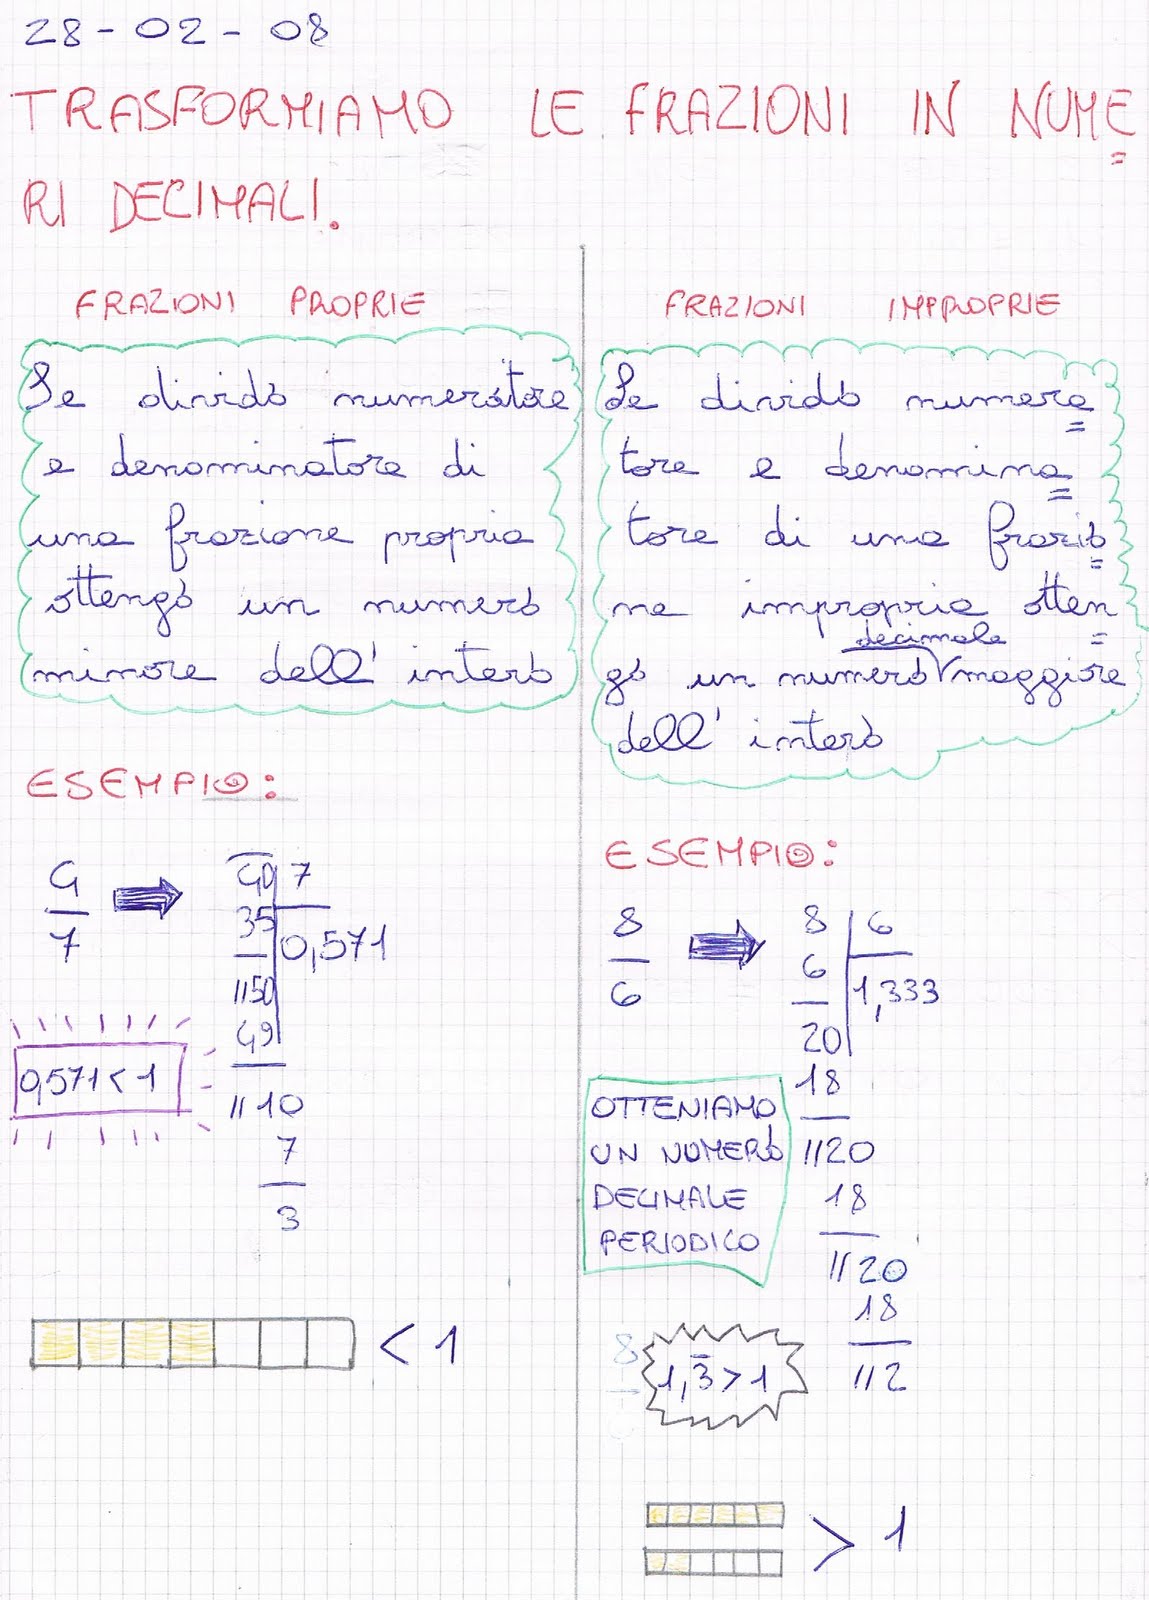 28-02-08
TRASFORMIAMO LE FRAZIONI IN NUME
RI DECIMALI.
FRAZIONI PROPRIE
Se divido numeratore
e denominatore di
una frazione propria
ottengo un numero
minore dell'intero
ESEMPIO:
4
7
40 7
35
0,571
1150
49
0,571 < 1
1110
7
3
< 1
FRAZIONI IMPROPRIE
Se divido numera
tore e denomina
tore di una frazio
ne impropria otten
decimale
go un numero maggiore
dell'intero
ESEMPIO:
8
6
8 6
6
1,333
20
18
OTTENIAMO
UN NUMERO
DECIMALE
PERIODICO
1120
18
1120
18
112
8
1,3̅ > 1
> 1